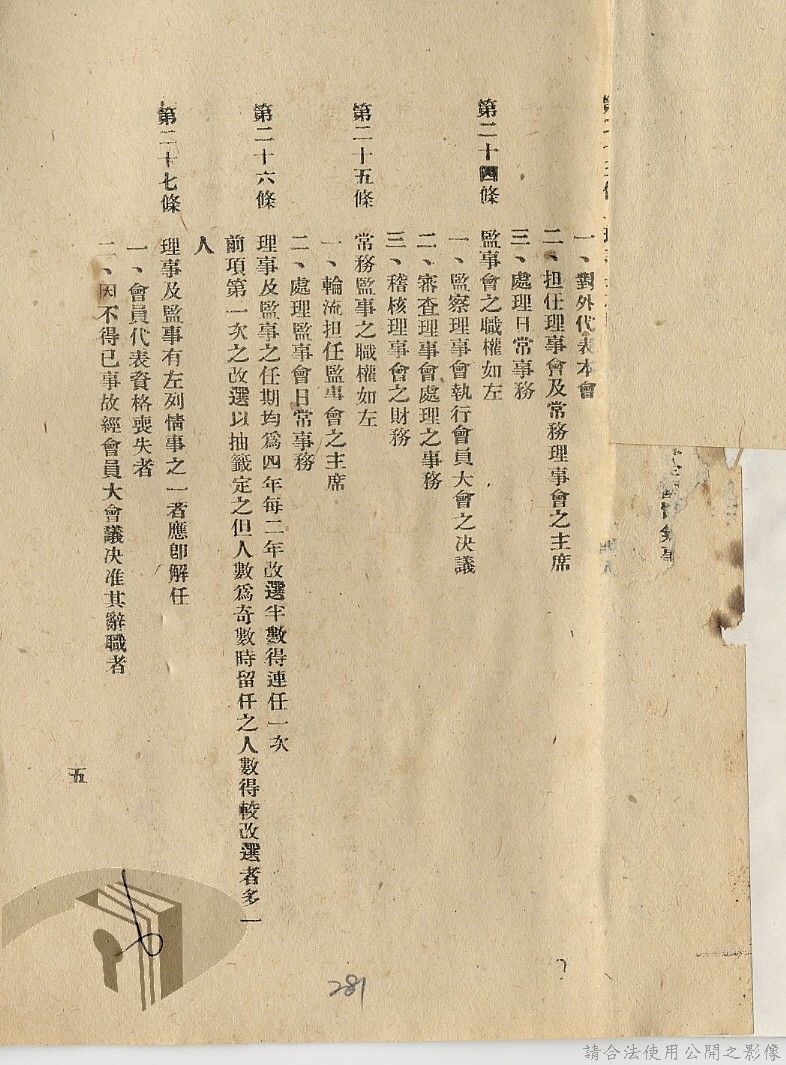 一、對外代表本會
二、担任理事會及常務理事會之主席
三、處理日常事務
第二十四條　監事會之職權如左
一、監察理事會執行會員大會之決議
二、審查理事會處理之事務
三、稽核理事會之財務
第二十五條　常務監事之職權如左
一、輪流担任監事會之主席
二、處理監事會日常事務
第二十六條　理事及監事之任期均爲四年每二年改選半數得連任一次
前項第一次之改選以抽籤定之但人數爲奇數時留任之人數得較改選者多一
人
第二十七條　理事及監事有左列情事之一者應卽解任
一、會員代表資格喪失者
二、因不得已事故經會員大會議决准其辭職者
五
281
請合法使用公開之影像